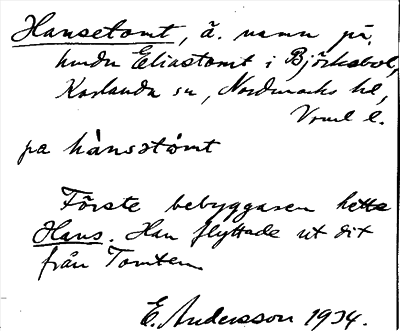 Hansetomt, ä. namn på
hmdn Eliastomt i Björkebol,
Karlanda sn, Nordmarks hd,
Vrml l.
pa hànsstómt
Förste bebyggaren hette
Hans. Han flyttade ut dit
från Tomten.
E. Andersson 1934.